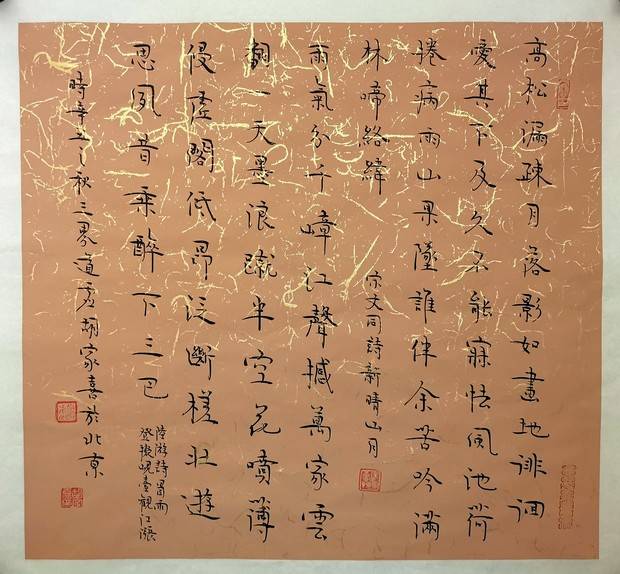 高松漏疎月落影如畫地徘徊
愛其下及久不能寐怯風池荷
捲病雨山果墜誰伴余苦吟滿
林啼絡緯
宋文同詩新晴山月
雨氣分千嶂江聲撼萬家雲
翻一天墨浪蹴半空花噴薄
侵虛閣低昂泛斷槎壯遊
思夙昔乘醉下三巴
陸游詩冒雨
登擬峴臺觀江漲
時辛丑之秋三界道虛胡家喜於北京